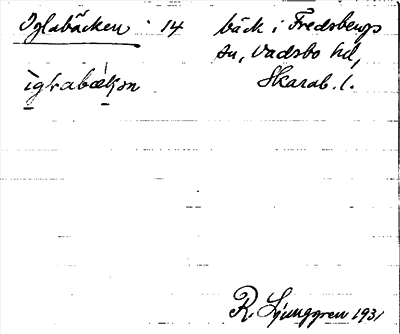 Iglabäcken · 14 bäck i Fredsbergs
sn, Vadsbo hd,
Skarab. l.
R. Ljunggren 1931